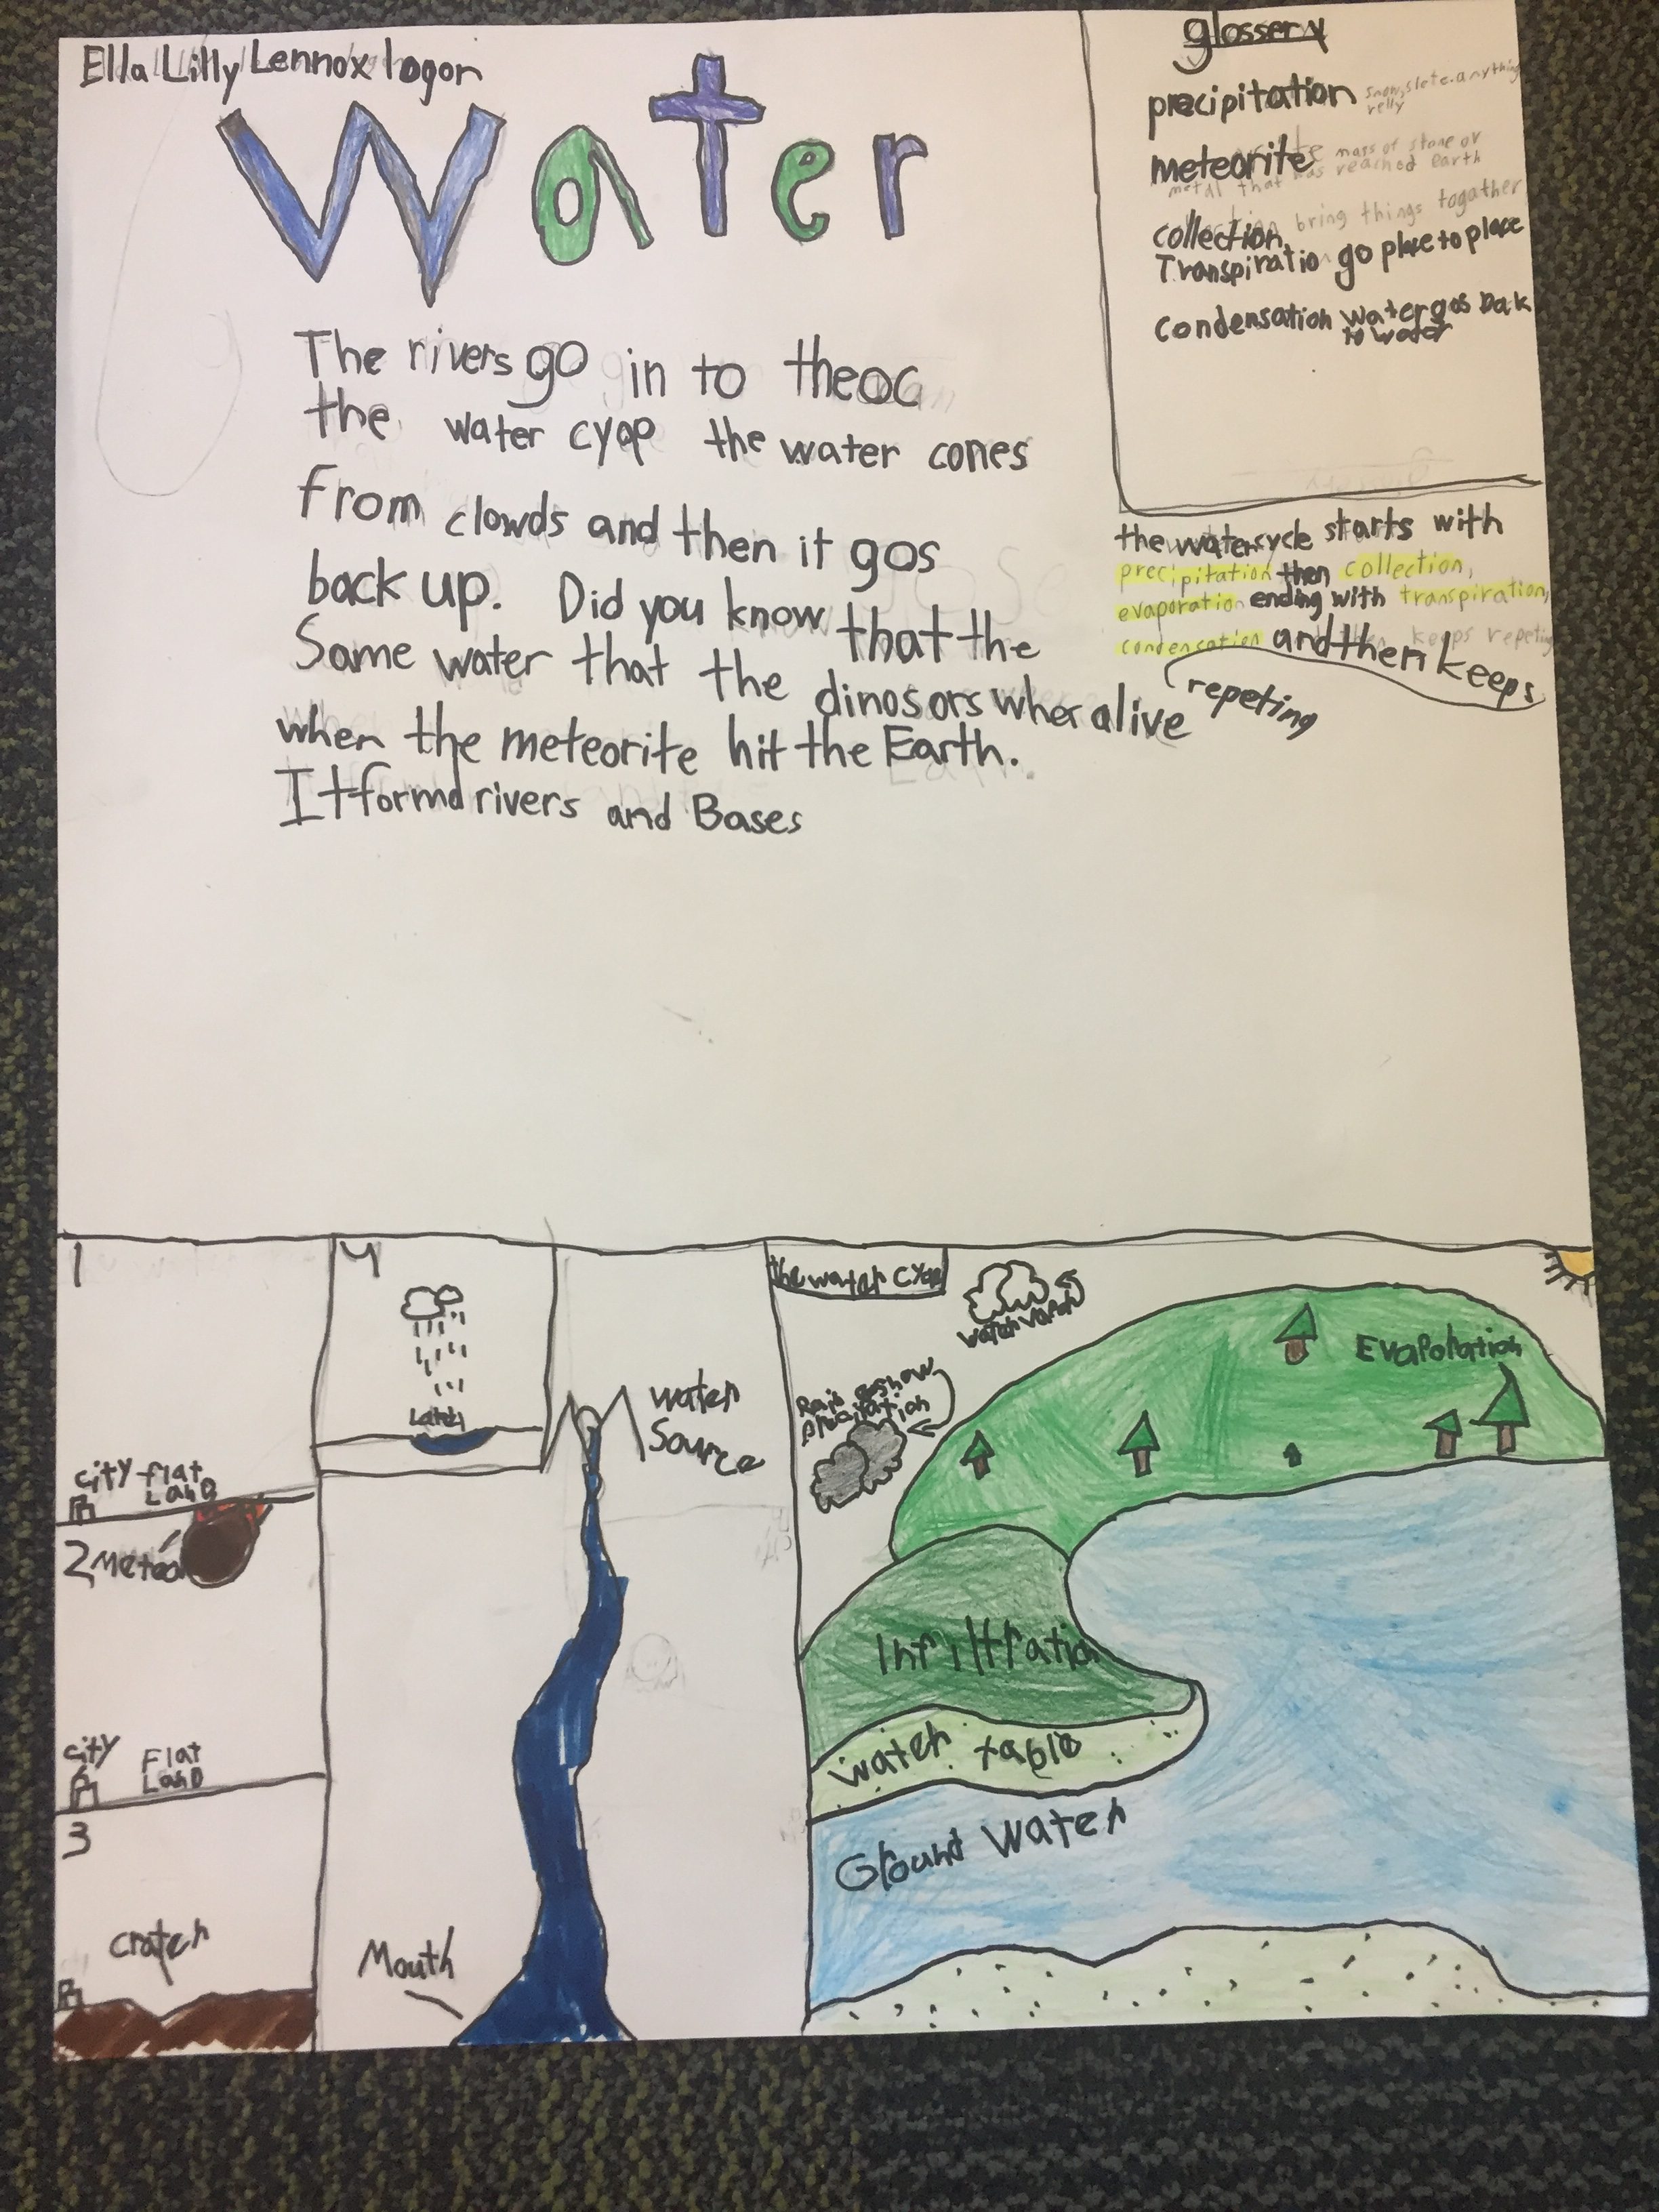 Ella Lilly Lennox logon
Water
The rivers go in to theoc
the water cyqp the water cones
from clowds and then it gos
back up. Did you know that the
Same water that the dinosors wher alive
when the meteorite hit the Earth.
It formd rivers and Bases
glossery
precipitation snow, slete. anything
relly
meteorite mass of stone or
metal that has reached earth
collection bring things togather
Transpiratio go place to place
condensation water gos bak
to water
the watercycle starts with
precipitation then collection,
evaporation ending with transpiration,
condensation and then keeps
repeting
1
city flat
LanD
2 Meteor
city Flat
LanD
3
crater
4
Later
water
Source
Mouth
the water cyqp
water vapor
Rain snow
Evaporation
Infiltration
water table
Ground water